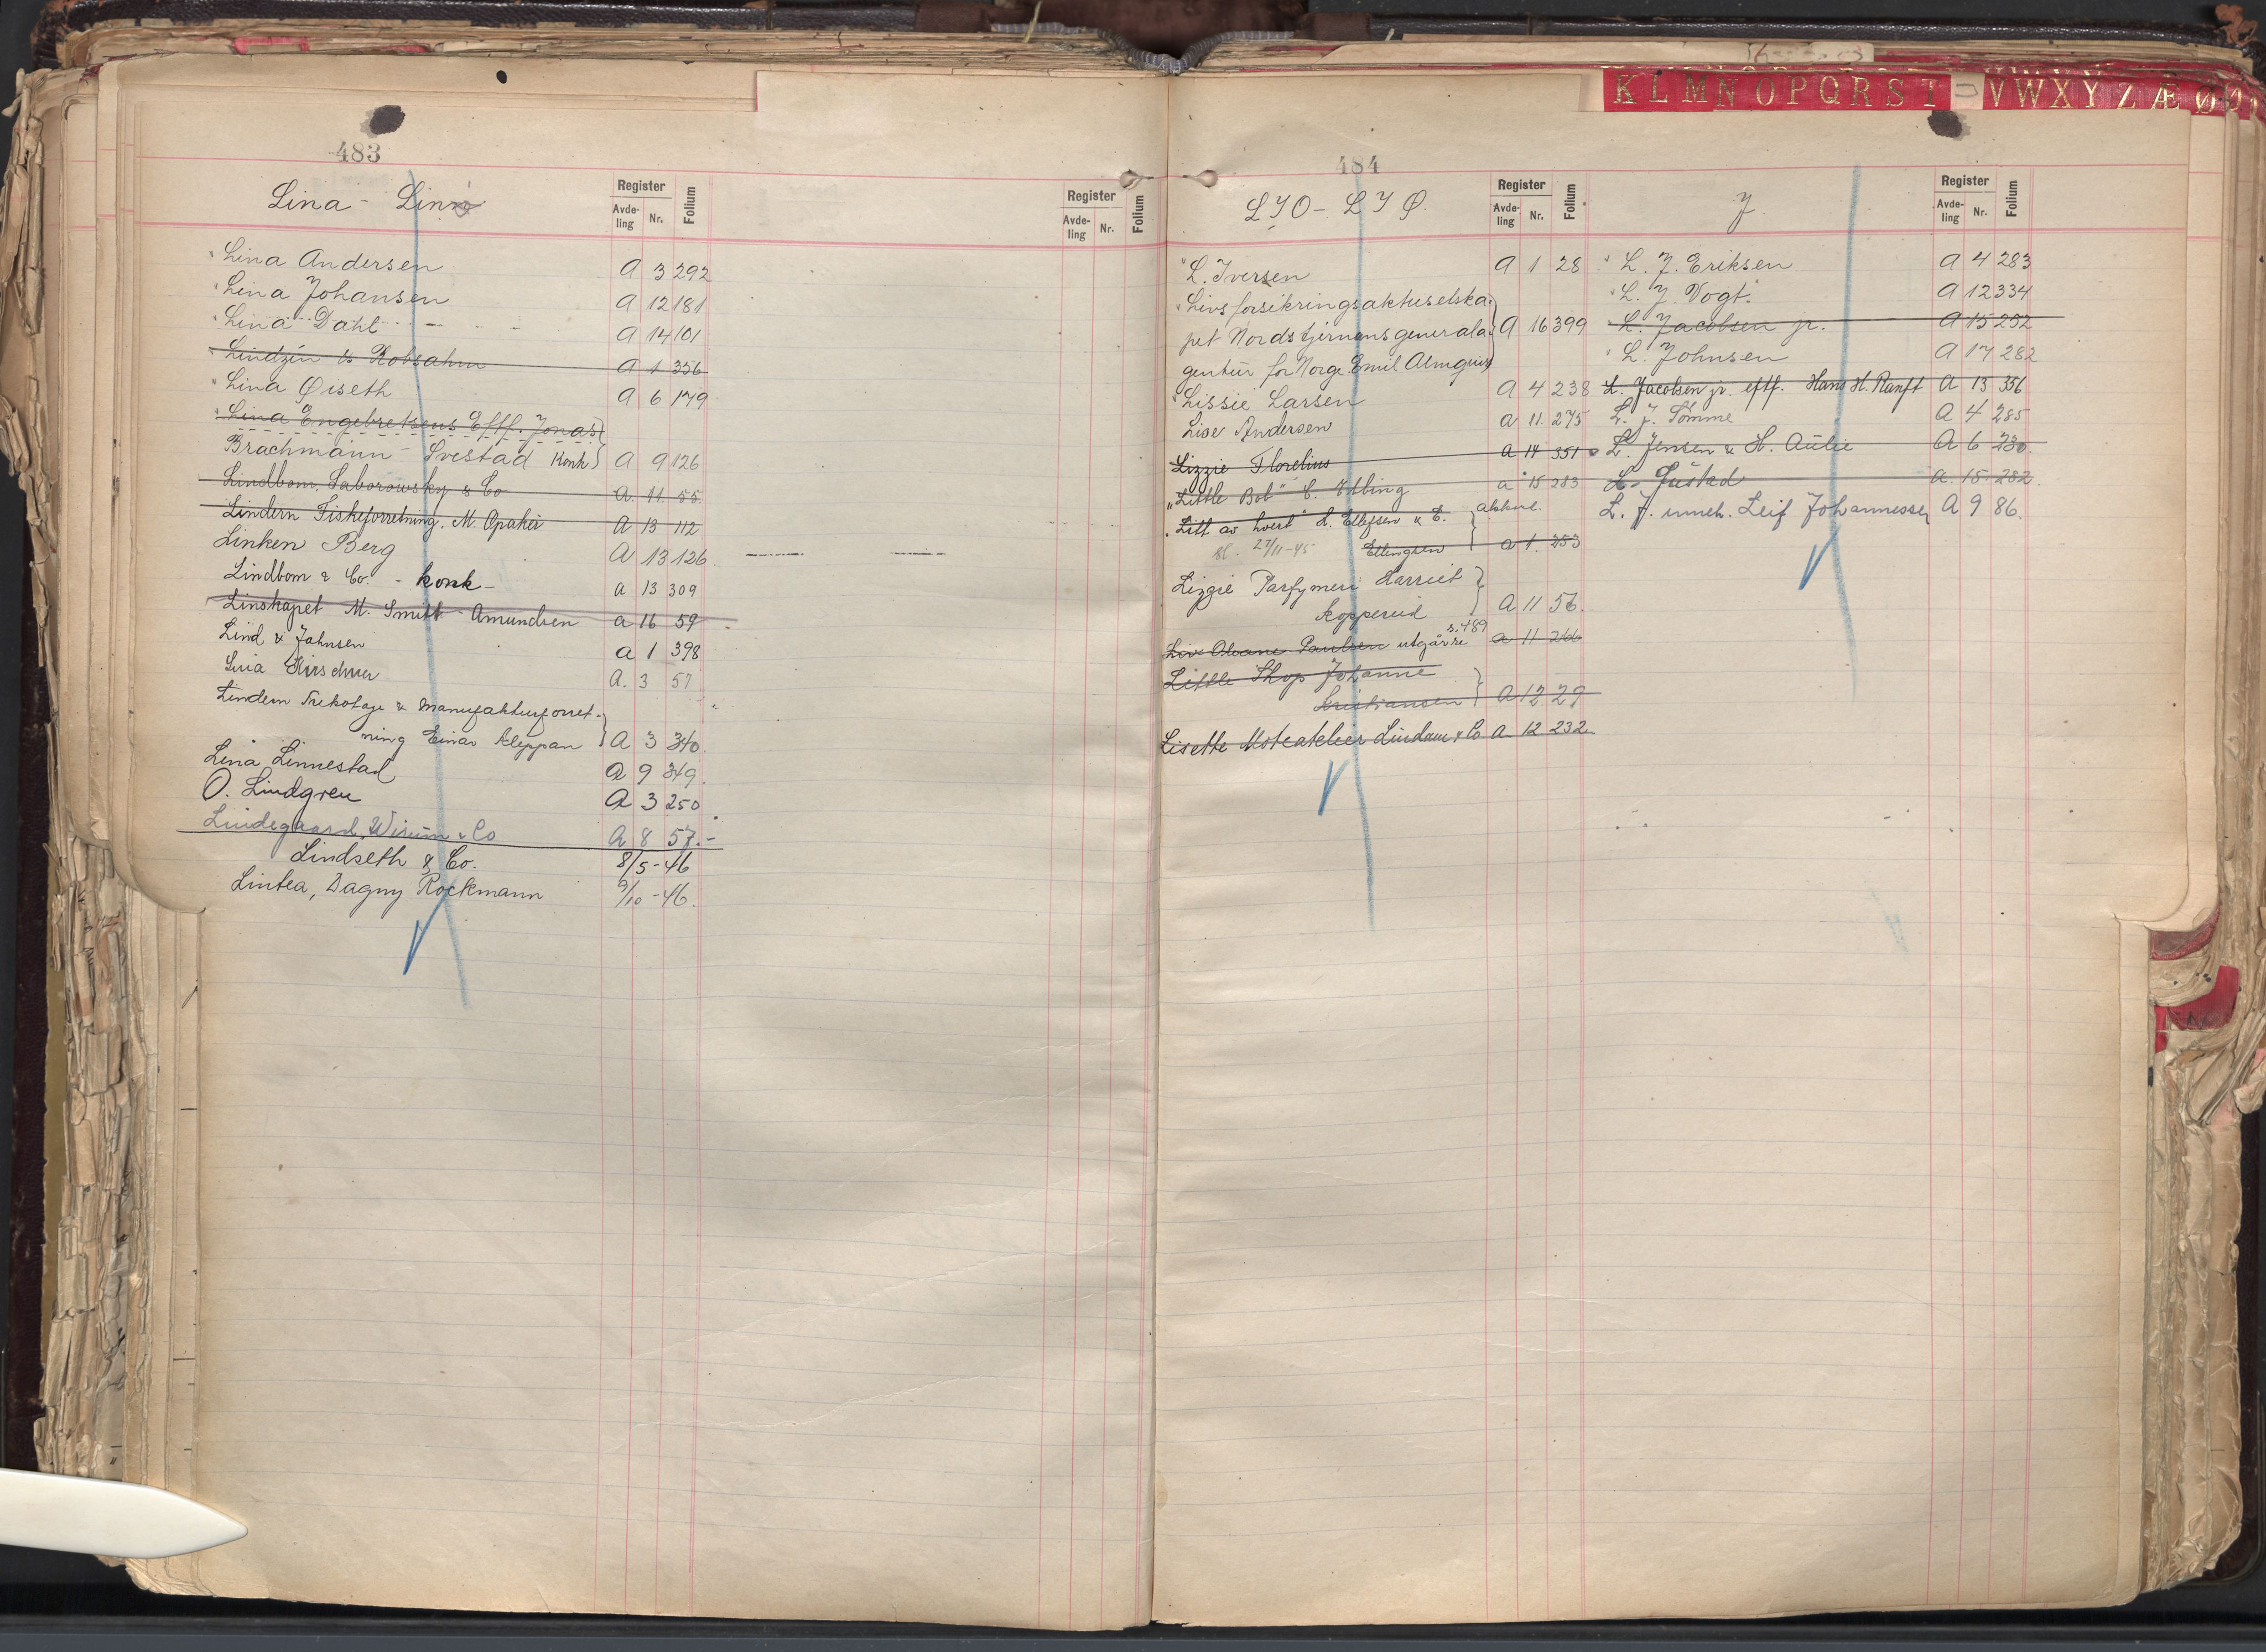 K L M N O P Q R S T U V W X Y Z Æ Ø
483
Lina - Linn
Register
Avde-ling Nr. Folium
Lina Andersen A 3 292
Lina Johansen A 12 181
Lina Dahl A 14 101
Lindzén & Robsahm A 1 356
Lina Øiseth A 6 179
Lina Engebretsens Eftf. Jonas
Brachmann-Svestad Konk A 9 126
Lindbom, Saborowsky & Co A. 11 55
Lindern Fiskeforretning. M. Opaker A 13 112
Linken Berg A 13 126
Lindbom & Co. - konk - a 13 309
Linskapet M. Smitt-Amundsen a 16 59
Lind & Jahnsen a 1 398
Lina Hirschner A. 3 57
Lindern Trikotage & Manufakturforret-
ning Einar Kleppan A 3 340.
Lina Linnestad A 9 349.
O. Lindgren A 3 250
Lindegaard, & Co A 8 57.-
Lindseth & Co. 8/5-46
Lintea, Dagny Rockmann 9/10-46.
Register
Avde-ling Nr. Folium
484
LIO - LIØ.
Register
Avde-ling Nr. Folium
L. Iversen A 1 28
Livsforsikringsaktieselska-
pet Nordstjernans generala- A 16 399
gentur for Norge Emil Almquist
Lissie Larsen A 4 238
Lise Andersen a 11. 275
Lizzie Florelius a 14 351
"Little Bob" C. Ebbing a 15 213
"Litt av hvert" L. Ellefsen & E.
sl. 27/11-45 Ellingsen a 1. 253
Lizzie Parfymeri Harriet
Koppereid A 11 56.
s. 489
Liv Oleane Paulsen utgår se a 11 266
Little Shop Johanne
Kristiansen A 12 29
Lisette Moteatelier Lindam & Co A 12 232
J
Register
Avde-ling Nr. Folium
L. J. Eriksen A 4 283
L. J. Vogt. A 12 334
L. Jacobsen jr. A 15 252
L. Johnsen A 17 282
L. Jacobsen jr. eftf. Hans H. Ranft A 13 356
L. J. Tømme A 4 285
L. Jensen & H. Aulie A 6 230.
L. Justad A. 15 282.
L. J. inneh. Leif Johannessen A 9 86.